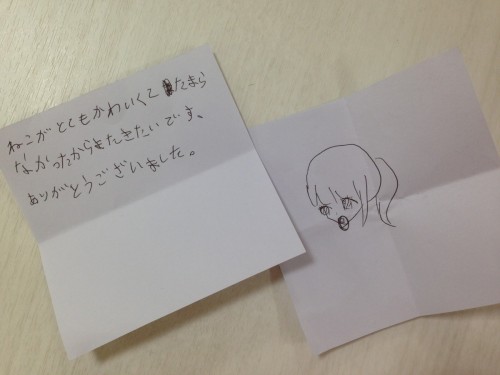 ねこがとてもかわいくてたまら
なかったからまたきたいです、
ありがとうございました。